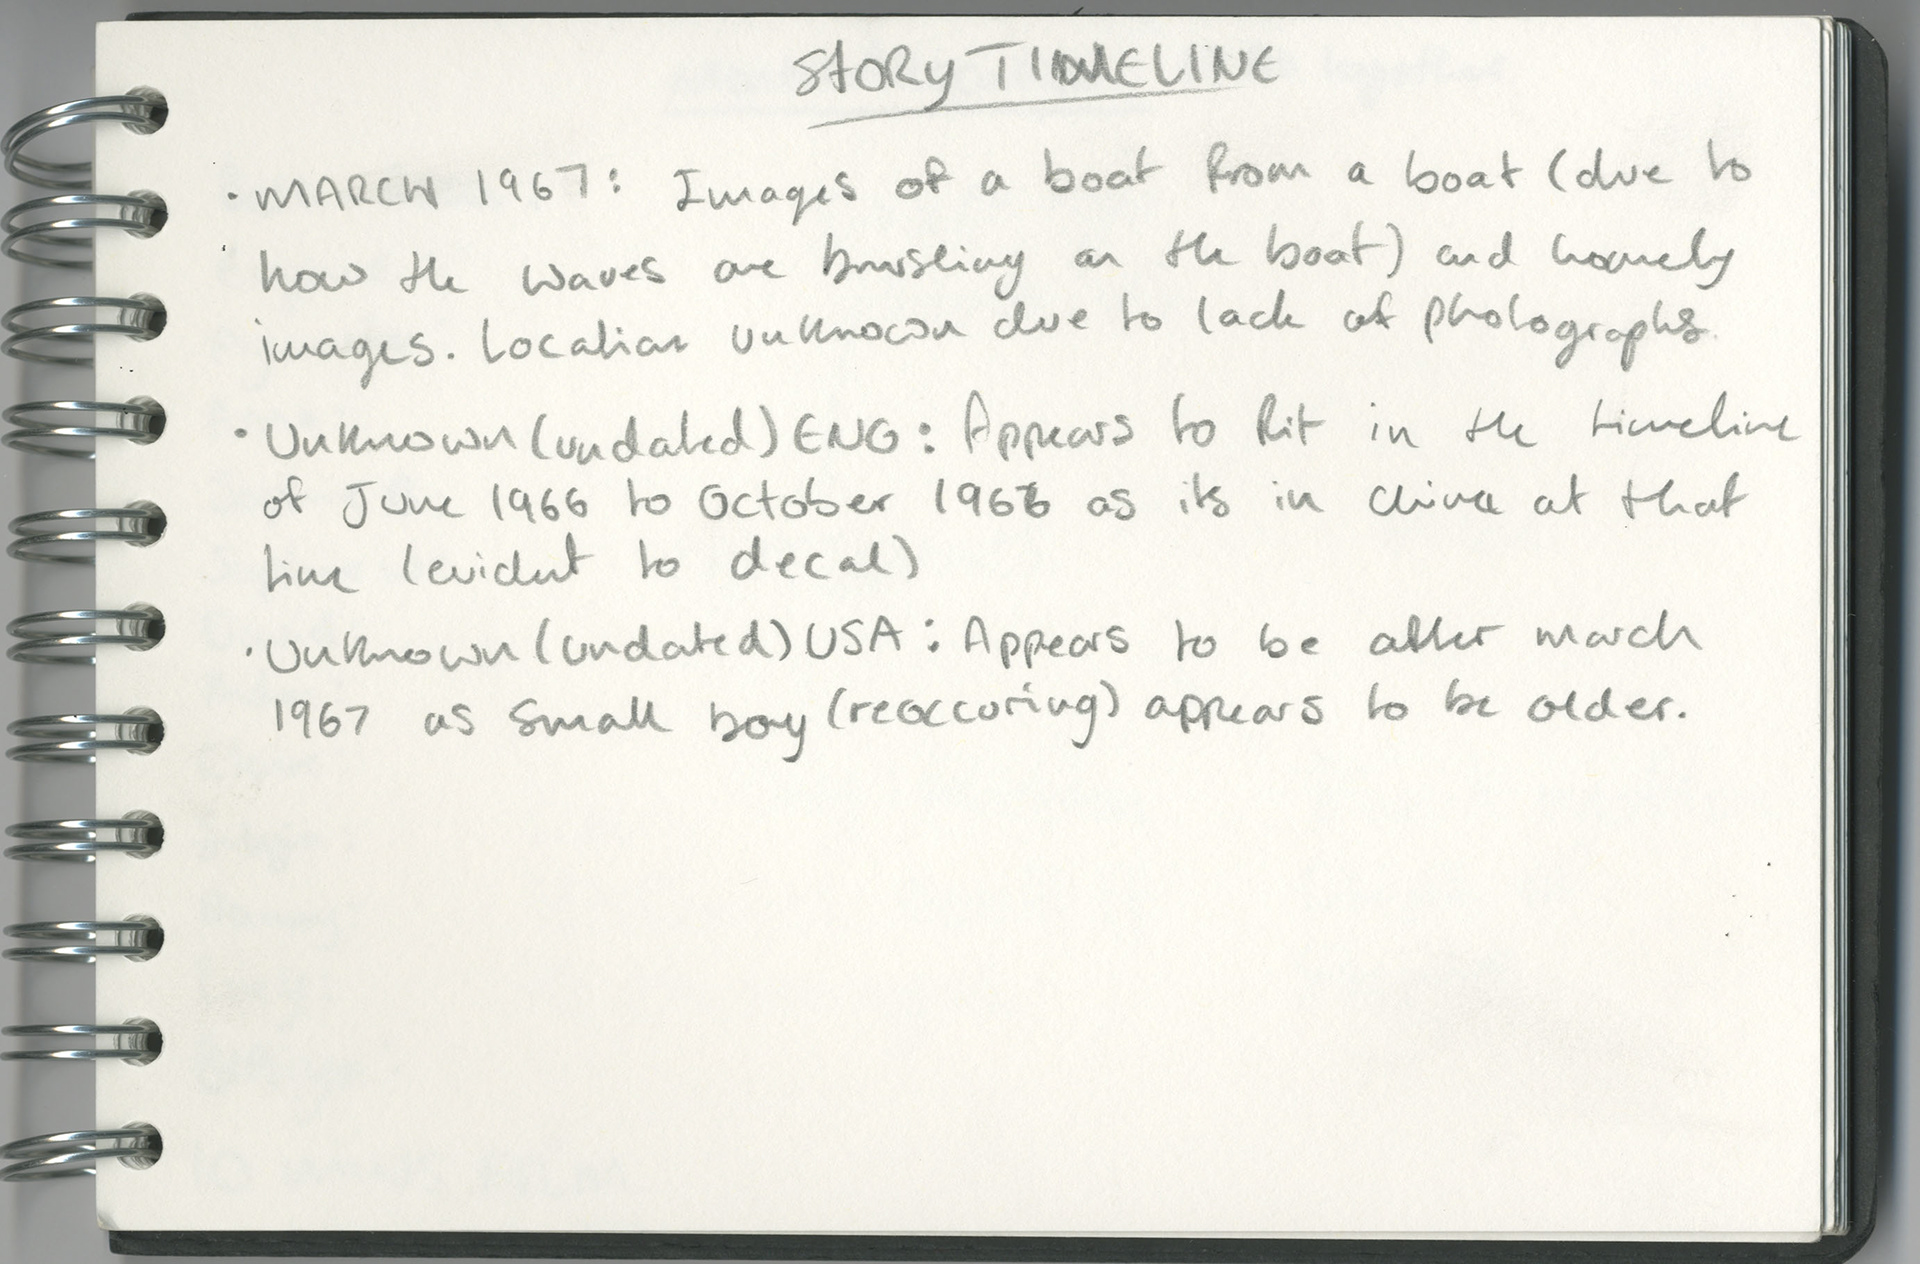 STORY TIMELINE
· MARCH 1967: Images of a boat from a boat (due to
how the waves are brustling on the boat) and homely
images. Location unknown due to lack of photographs.
· Unknown (undated) ENG: Appears to fit in the timeline
of June 1966 to October 1966 as its in china at that
time (evident to decal)
· Unknown (undated) USA: Appears to be after march
1967 as small boy (reoccuring) appears to be older.